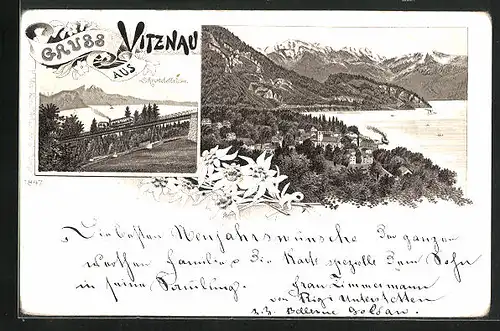 GRUSS
AUS
VITZNAU
Schnurtobelbrücke.
1847
Die besten Neujahrswünsche Der ganzen
werthen Familie Die Karte spezielle Dem Sohn
in seine Samlung. Frau Zimmermann
von Rigi Unterstetten
z. Z. Goldau.